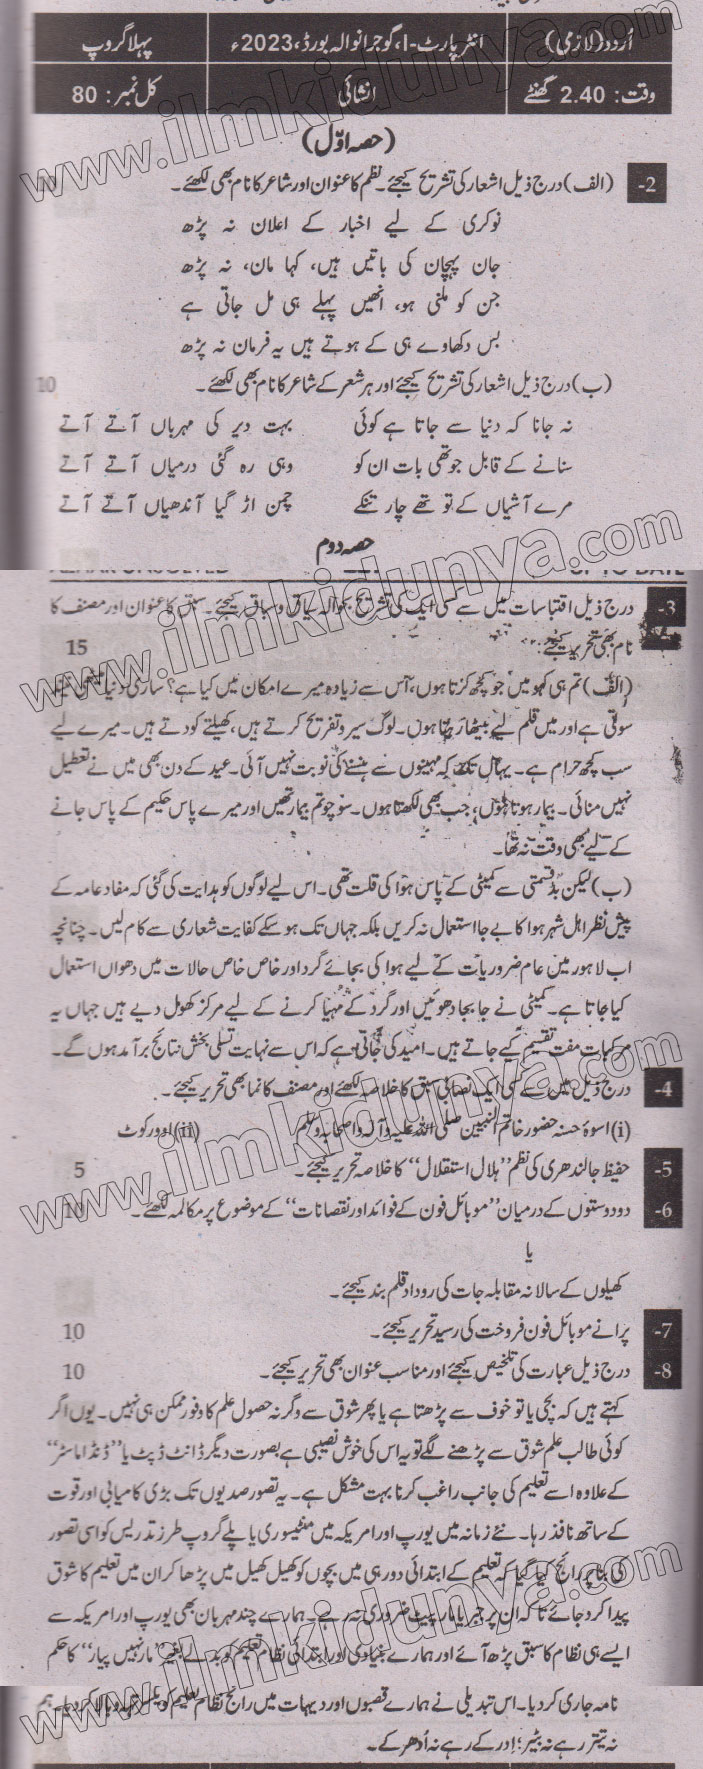 اردو (لازمی) انٹر پارٹ-I، گوجرانوالہ بورڈ، 2023ء پہلا گروپ
وقت: 2.40 گھنٹے انشائی کل نمبر: 80
(حصہ اوّل)
2- (الف) درج ذیل اشعار کی تشریح کیجئے۔ نظم کا عنوان اور شاعر کا نام بھی لکھئے۔ 10
نوکری کے لیے اخبار کے اعلان نہ پڑھ
جان پہچان کی باتیں ہیں، کہا مان، نہ پڑھ
جن کو ملنی ہو، انھیں پہلے ہی مل جاتی ہے
بس دکھاوے ہی کے ہوتے ہیں یہ فرمان نہ پڑھ
(ب) درج ذیل اشعار کی تشریح کیجئے اور ہر شعر کے شاعر کا نام بھی لکھئے۔ 10
نہ جانا کہ دنیا سے جاتا ہے کوئی بہت دیر کی مہرباں آتے آتے
سنانے کے قابل جو تھی بات ان کو وہی رہ گئی درمیاں آتے آتے
مرے آشیاں کے تو تھے چار تنکے چمن اڑ گیا آندھیاں آتے آتے
حصہ دوم
UP TO DATE
3- درج ذیل اقتباسات میں سے کسی ایک کی تشریح بحوالہ سیاق و سباق کیجئے۔ سبق کا عنوان اور مصنف کا
نام بھی تحریر کیجئے: 15
(الف) تم ہی کہو میں جو کچھ کرتا ہوں، اُس سے زیادہ میرے امکان میں کیا ہے؟ ساری دنیا
سوتی ہے اور میں قلم لیے بیٹھا رہتا ہوں۔ لوگ سیر و تفریح کرتے ہیں، کھیلتے کودتے ہیں۔ میرے لیے
سب کچھ حرام ہے۔ یہاں تک کہ مہینوں سے ہنسنے کی نوبت نہیں آئی۔ عید کے دن بھی میں نے تعطیل
نہیں منائی۔ بیمار ہوتا ہوں، جب بھی لکھتا ہوں۔ سوچو تم بیمار تھیں اور میرے پاس حکیم کے پاس جانے
کے لیے بھی وقت نہ تھا۔
(ب) لیکن بدقسمتی سے کمیٹی کے پاس ہوا کی قلت تھی۔ اس لیے لوگوں کو ہدایت کی گئی کہ مفاد عامہ کے
پیش نظر اہل شہر ہوا کا بے جا استعمال نہ کریں بلکہ جہاں تک ہو سکے کفایت شعاری سے کام لیں۔ چنانچہ
اب لاہور میں عام ضروریات کے لیے ہوا کی بجائے گرد اور خاص خاص حالات میں دھواں استعمال
کیا جاتا ہے۔ کمیٹی نے جا بجا دھوئیں اور گرد کے مہیا کرنے کے لیے مرکز کھول دیے ہیں جہاں یہ
مرکبات مفت تقسیم کیے جاتے ہیں۔ امید کی جاتی ہے کہ اس سے نہایت تسلی بخش نتائج برآمد ہوں گے۔
4- درج ذیل میں سے کسی ایک نصابی سبق کا خلاصہ لکھئے اور مصنف کا نما بھی تحریر کیجئے۔
(i) اسوۂ حسنہ حضور خاتم النبیین صلی اللہ علیہ وآلہ واصحابہ وسلم (ii) اوور کوٹ
5- حفیظ جالندھری کی نظم "ہلال استقلال" کا خلاصہ تحریر کیجئے۔ 5
6- دو دوستوں کے درمیان "موبائل فون کے فوائد اور نقصانات" کے موضوع پر مکالمہ لکھئے۔ 10
یا
کھیلوں کے سالانہ مقابلہ جات کی روداد قلم بند کیجئے۔
7- پرانے موبائل فون فروخت کی رسید تحریر کیجئے۔ 10
8- درج ذیل عبارت کی تلخیص کیجئے اور مناسب عنوان بھی تحریر کیجئے۔ 10
کہتے ہیں کہ بچی یا تو خوف سے پڑھتا ہے یا پھر شوق سے وگرنہ حصول علم کا وفور ممکن ہی نہیں۔ یوں اگر
کوئی طالب علم شوق سے پڑھنے لگے تو یہ اس کی خوش نصیبی ہے بصورت دیگر ڈانٹ ڈپٹ یا "ڈنڈا ماسٹر"
کے علاوہ اسے تعلیم کی جانب راغب کرنا بہت مشکل ہے۔ یہ تصور صدیوں تک بڑی کامیابی اور قوت
کے ساتھ نافذ رہا۔ نئے زمانہ میں یورپ اور امریکہ میں منٹیسوری یا پلے گروپ طرز تدریس کو اسی تصور
کی بنا پر رائج کیا گیا کہ تعلیم کے ابتدائی دور ہی میں بچوں کو کھیل کھیل میں پڑھا کر ان میں تعلیم کا شوق
پیدا کر دو جائے تا کہ ان پر جبر یا مار پیٹ ضروری نہ رہے۔ ہمارے چند مہربان بھی یورپ اور امریکہ سے
ایسے ہی نظام کا سبق پڑھ آئے اور ہمارے بنیادی اور ابتدائی نظام تعلیم کو بدلے بغیر "مار نہیں پیار" کا حکم
نامہ جاری کر دیا۔ اس تبدیلی نے ہمارے قصبوں اور دیہات میں رائج نظام تعلیم کو یکسر تہہ و بالا کر دیا۔ ہم
نہ تیتر رہے نہ بٹیر؛ اِدر کے رہے نہ اُدھر کے۔
www.ilmkidunya.com